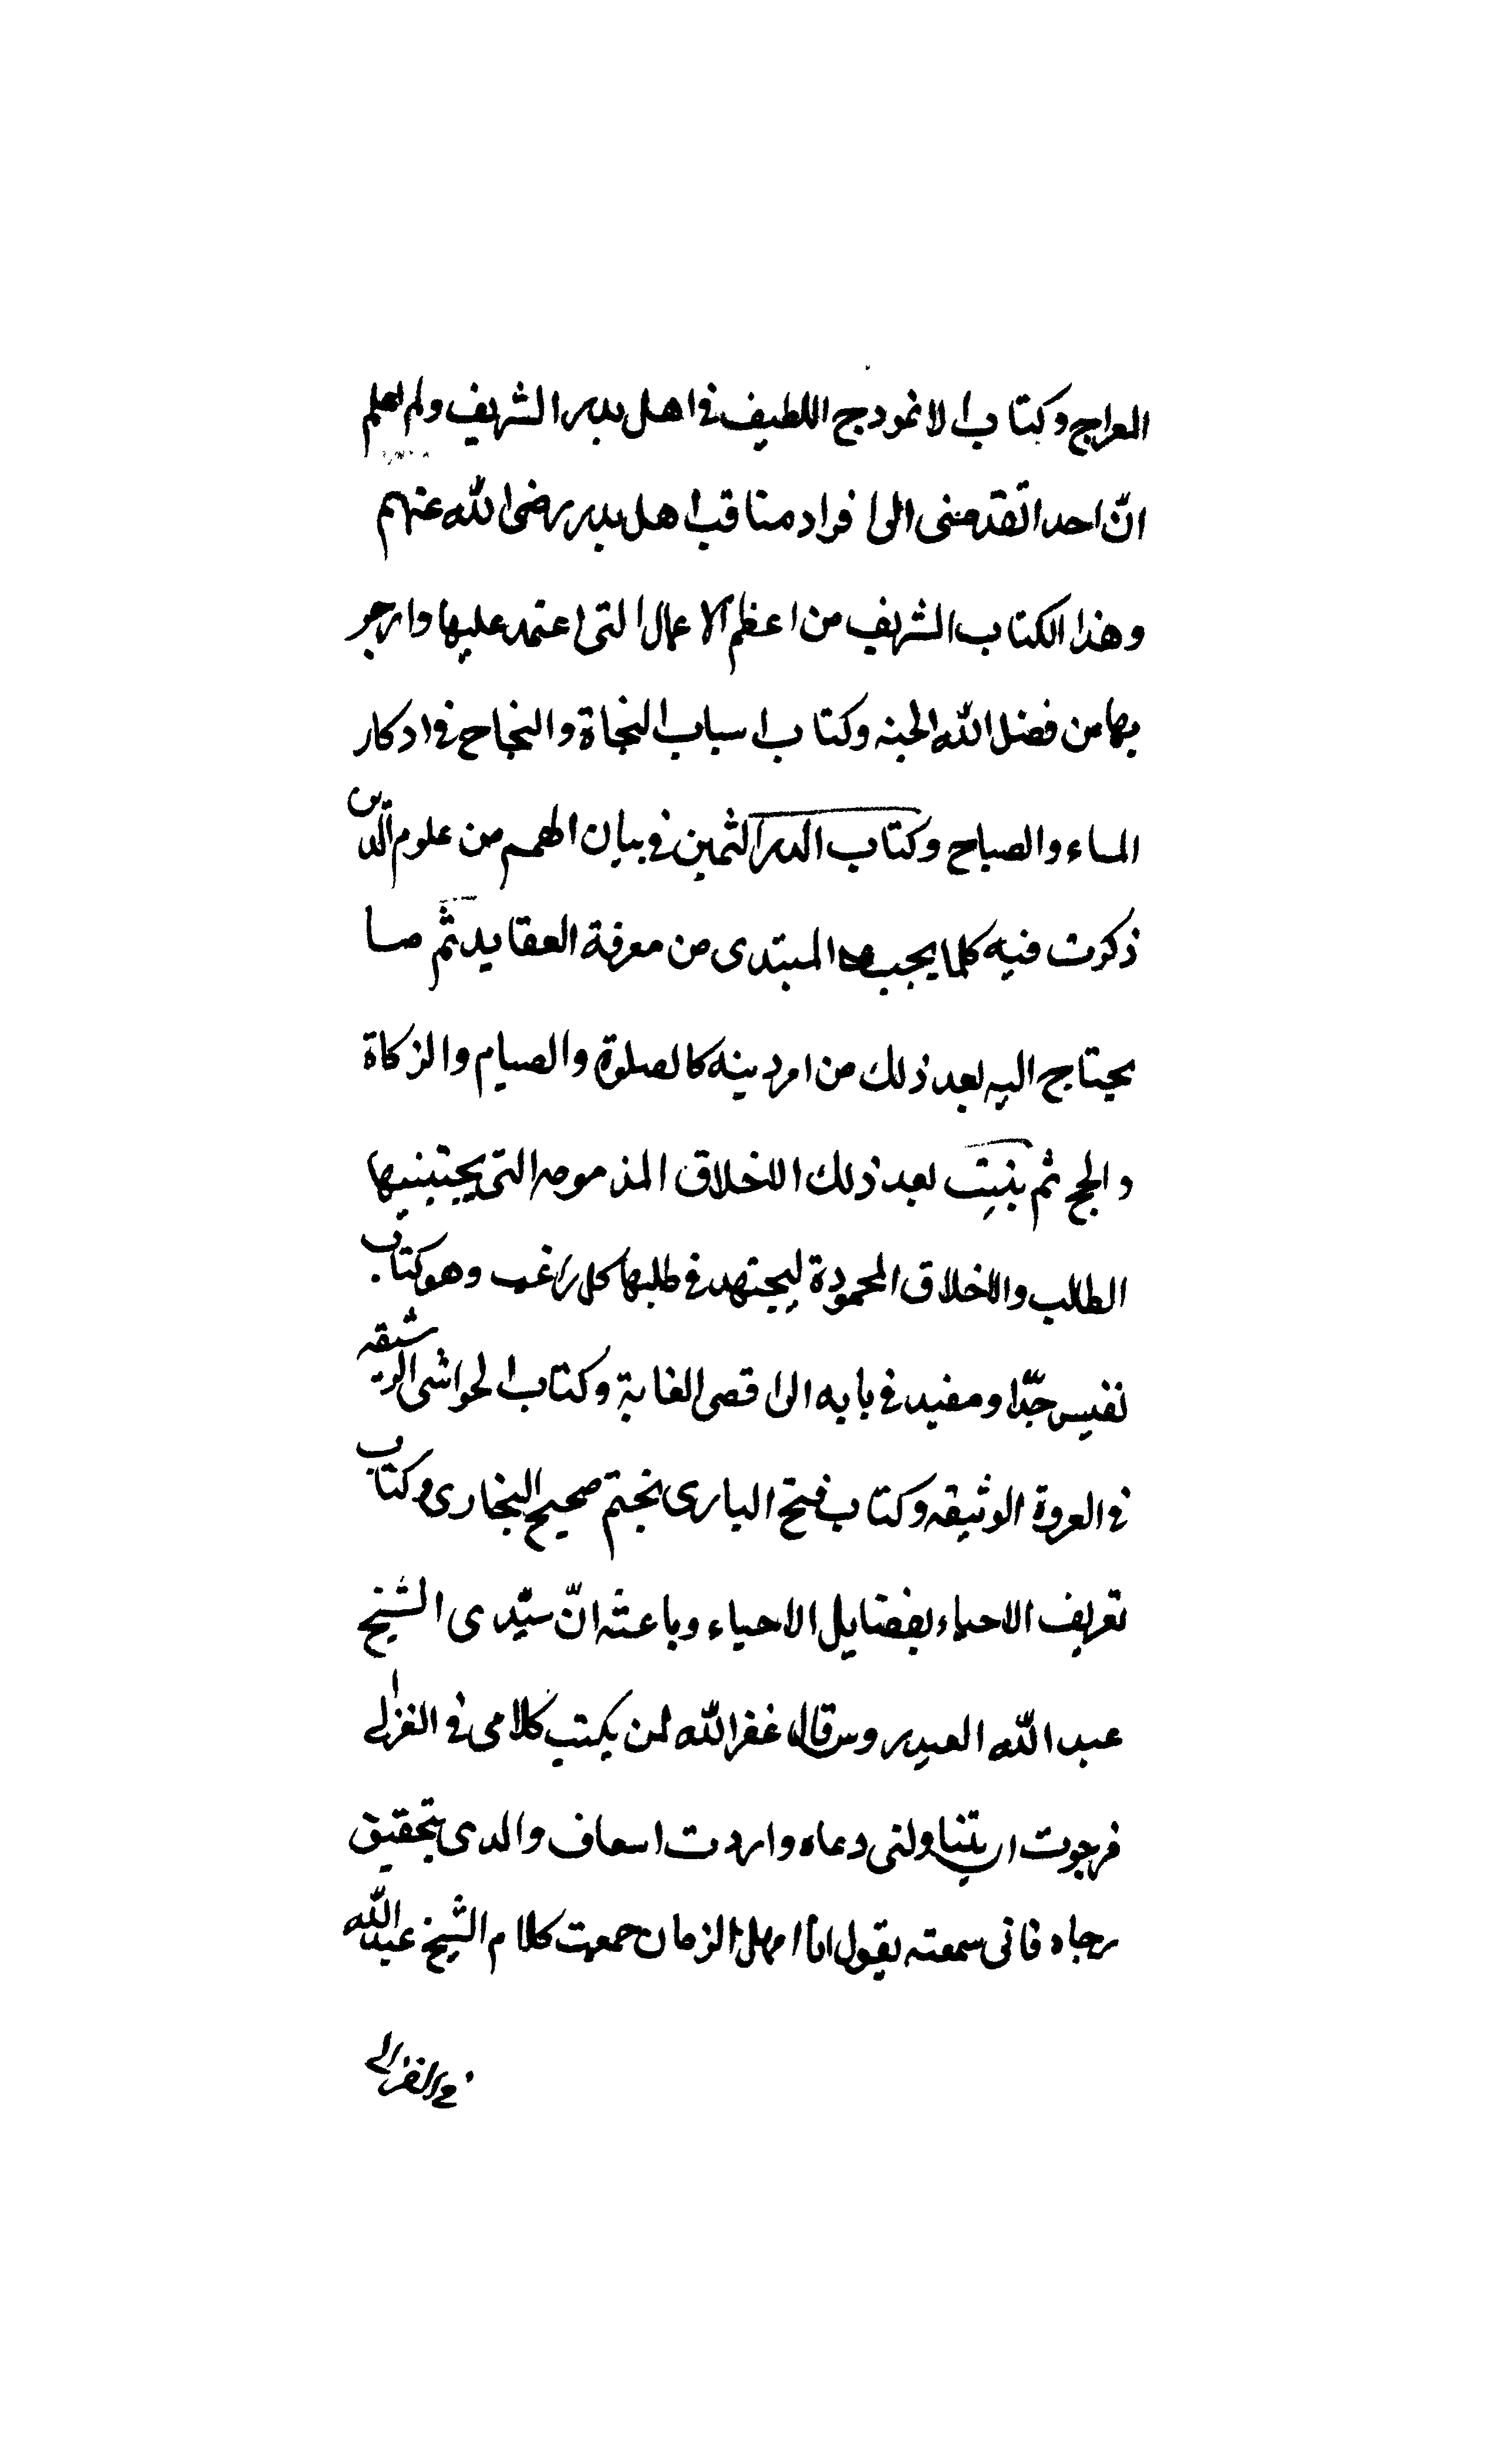 المعراج وكتاب الانموذج اللطيف في اهل بدر الشريف ولم اعلم
انّ احدا تقدمنى الى افراد مناقب اهل بدر رضى الله عنهم
وهذا الكتاب الشريف من اعظم الاعمال التى اعتمد عليها وارجو
بها من فضل الله الجنه وكتاب اسباب النجاة والنجاح في اذكار
المساء والصباح وكتاب الدر الثمين في بيان المهم من علوم الدّين
ذكرت فيه كلما يجب على المبتدى من معرفة العقايد ثم ما
يحتاج اليه بعد ذلك من امر دينه كالصلوة والصيام والزكاة
والحج ثم بنيت بعد ذلك الاخلاق المذمومه التى يجتنبها
الطالب والاخلاق المحمودة ليجتهد في طلبها كل راغب وهو كتاب
نفيس جدّا ومفيد في بابه الى اقصى الغاية وكتاب الحواشى الرشيقه
في العروة الوثيقه وكتاب فتح البارى بختم صحيح البخارى وكتاب
تعريف الاحياء بفضايل الاحياء وباعثه انّ سيّدى الشيخ
عبد الله العيدروس قال غفر الله لمن يكتب كلامى في الغزالى
فرجوت ان يتناولنى دعاه واردت اسعاف والدى بتحقيق
رجاه فانى سمعته يقول ان امهل الزمان جمعت كلام الشيخ عبد الله
في الغزالى